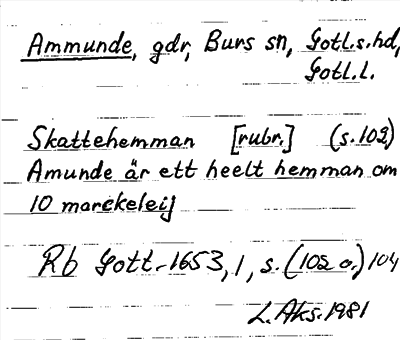 Ammunde, gdr, Burs sn, Gotl.s.hd,
Gotl.l.
Skattehemman [rubr.] (s.102)
Amunde är ett heelt hemman om
10 marckeleij
Rb Gott. 1653, 1, s. (102 o.) 104
L. Aks. 1981